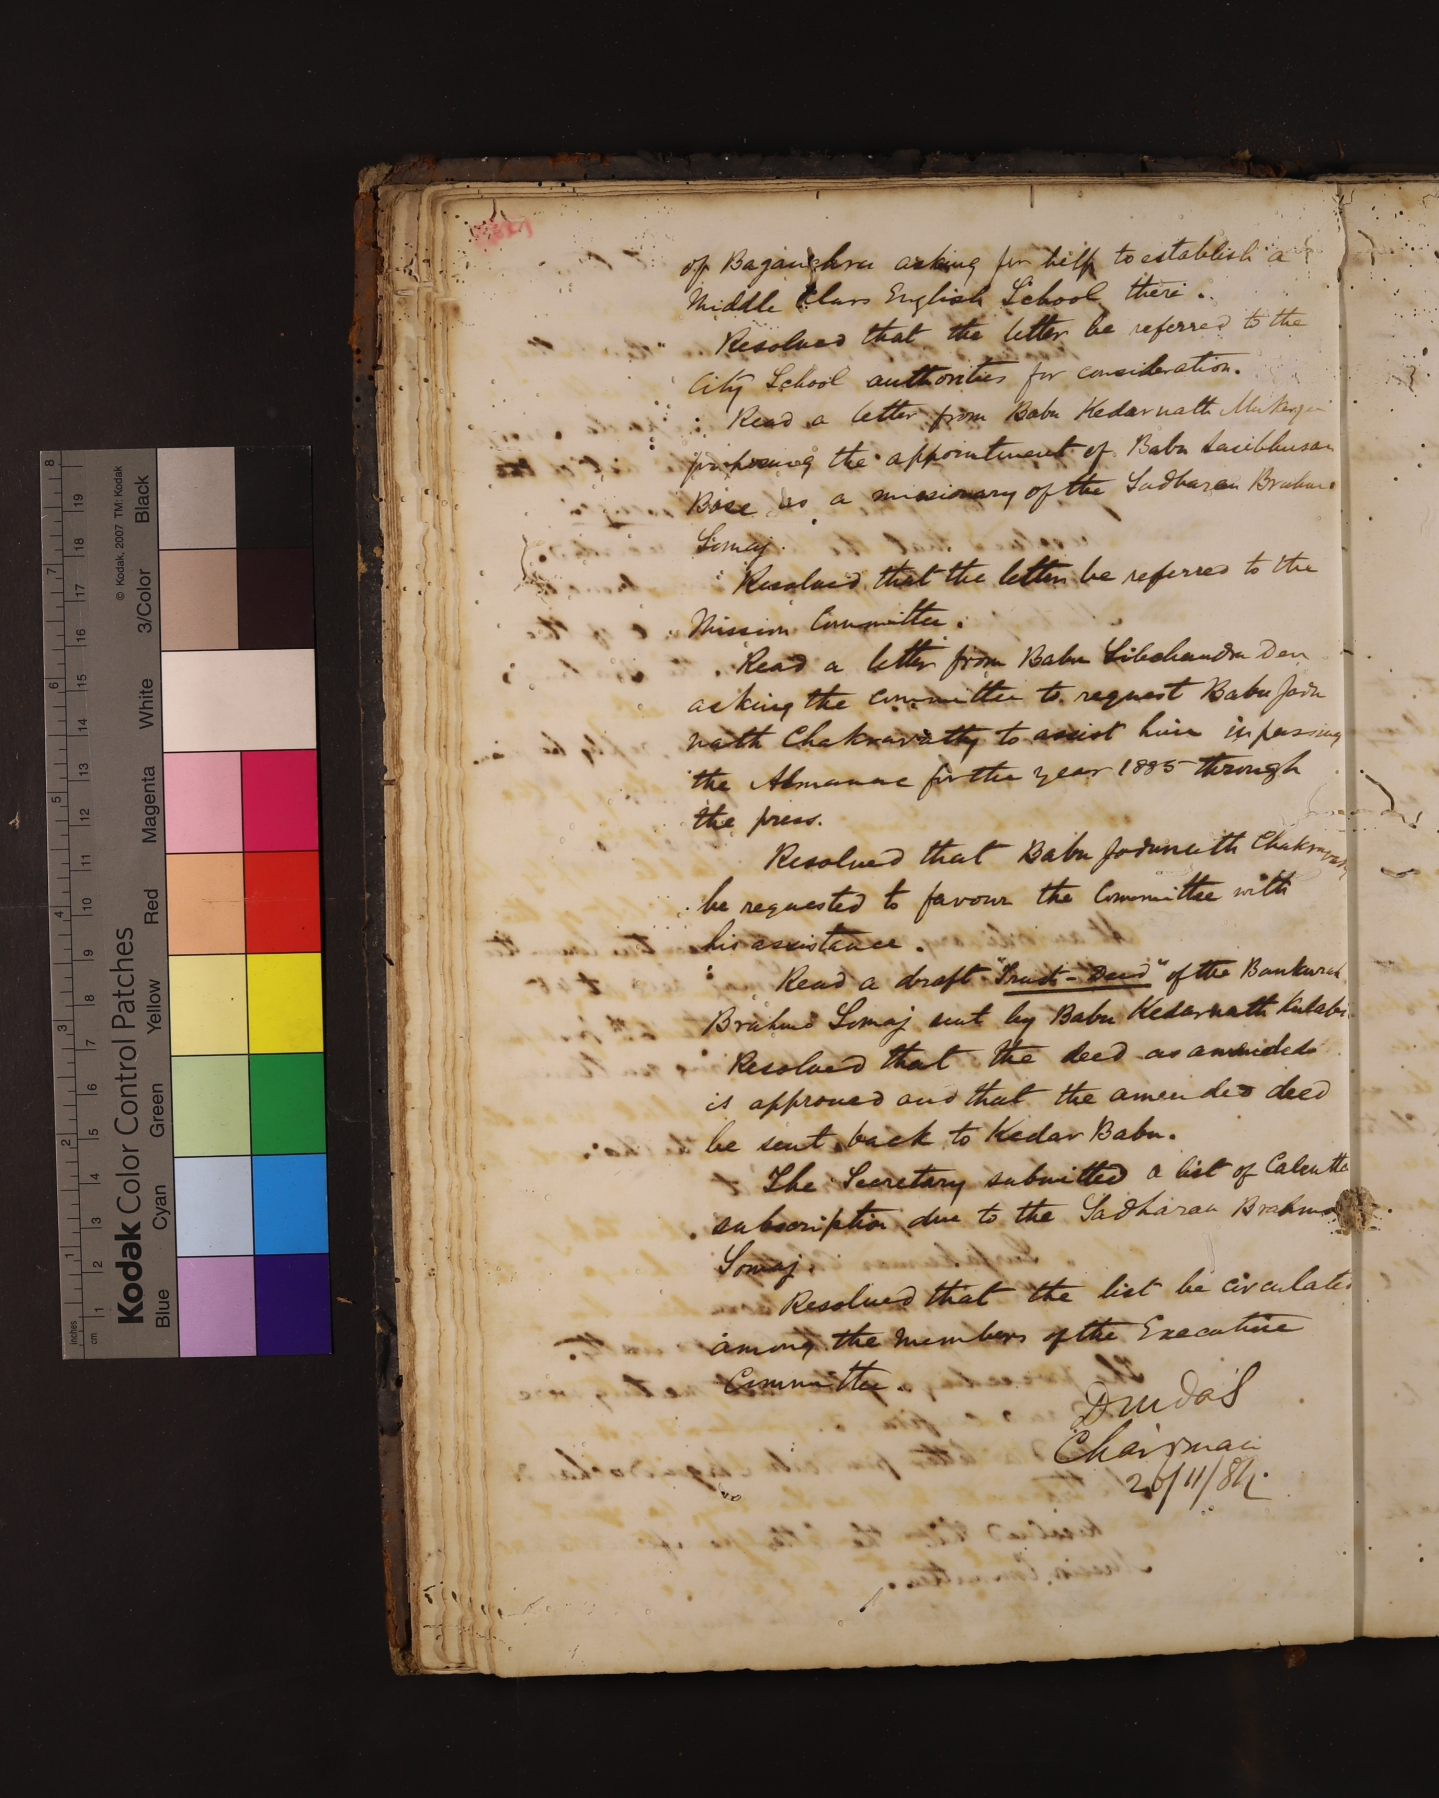 of Baganchra asking for help to establish a
Middle Class English School there.
Resolved that the letter be referred to the
City School authorities for consideration.
Read a letter from Babu Kedarnath Mukerjee
proposing the appointment of Babu Sasibhusan
Bose as a missionary of the Sadharan Brahmo
Somaj.
Resolved that the letter be referred to the
Mission Committee.
Read a letter from Babu Sibchandra Deu
asking the committee to request Babu Jadu
nath Chakravarty to assist him in passing
the Almanac for the year 1885 through
the press.
Resolved that Babu Jadunath Chakravarty
be requested to favour the Committee with
his assistance.
Read a draft "Trust-Deed" of the Bankurah
Brahmo Somaj sent by Babu Kedarnath Kulabi
Resolved that the deed as amended
is approved and that the amended deed
be sent back to Kedar Babu.
The Secretary submitted a list of Calcutta
subscription due to the Sadharan Brahmo
Somaj.
Resolved that the list be circulated
among the members of the Executive
Committee.
Chairman
20/11/84.
Kodak Color Control Patches
© Kodak, 2007 TM: Kodak
Blue Cyan Green Yellow Red Magenta White 3/Color Black
inches 1 2 3 4 5 6 7 8
cm 1 2 3 4 5 6 7 8 9 10 11 12 13 14 15 16 17 18 19